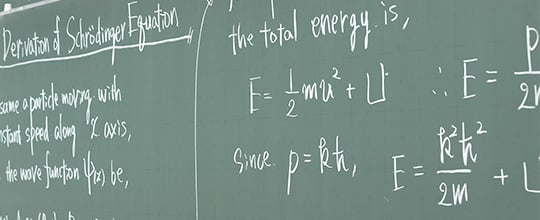 Derivation of Schrödinger Equation
same a particle moving with
stant speed along x axis,
the wave function ψ(x) be,
the total energy is,
E = 1/2 mu² + U ∴ E = p
2
Since p = kħ, E = k²ħ²/2m + U